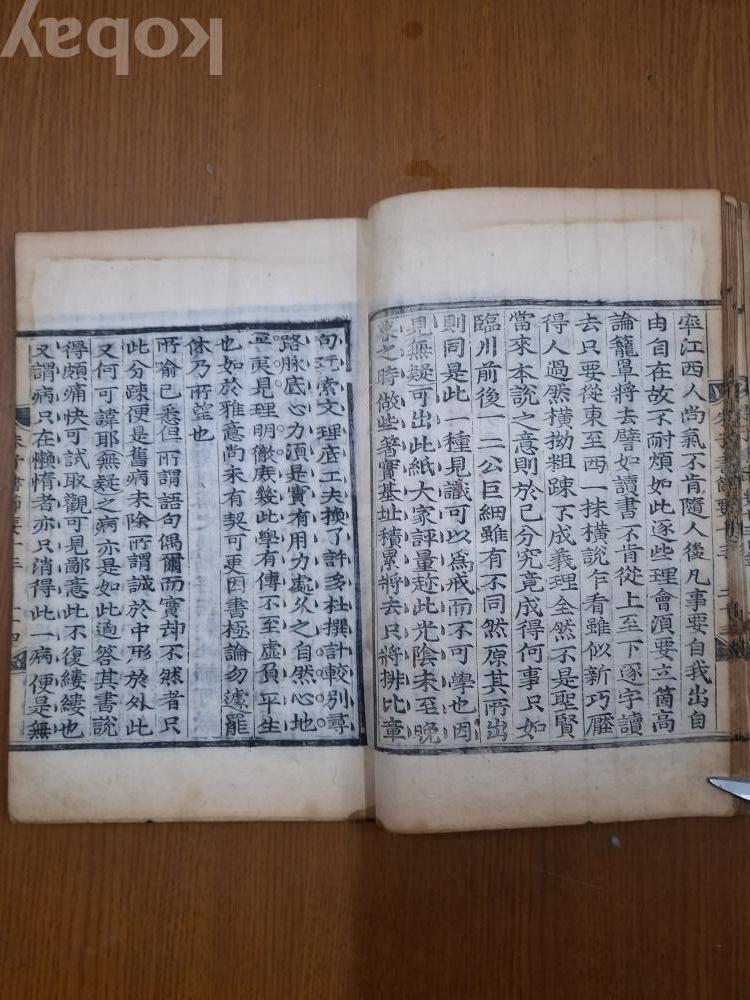 kobay
率江西人尚氣不肯隨人後凡事要自我出自
由自在故不耐煩如此逐些理會湏要立箇高
論籠罩將去譬如讀書不肯從上至下逐字讀
去只要從東至西一抹橫說乍看雖似新巧壓
得人過然橫拗粗踈不成義理全然不是聖賢
當來本說之意則於己分究竟成得何事只如
臨川前後一二公巨細雖有不同然原其所出
則同是此一種見識可以為戒而不可學也因
見無疑可出此紙大家評量趂此光陰未至晚
之時做些著實基址積累將去只將排比章
句玩索文理底工夫換了許多杜撰計較別尋
路脉底心力湏是實有用力處久之自然心地
平夷見理明徹庶幾此學有傳不至虛負平生
也如於雅意尚未有契可更因書極論勿遽罷
休乃所望也
所喻已悉但所謂語句偶爾而實却不然者只
此分踈便是舊病未除所謂誠於中形於外此
又何可諱耶無疑之病亦是如此適答其書說
得頗痛快可試取觀可見鄙意此不復縷縷也
又謂病只在懶惰者亦只消得此一病便是無
朱子書節要十三 十四